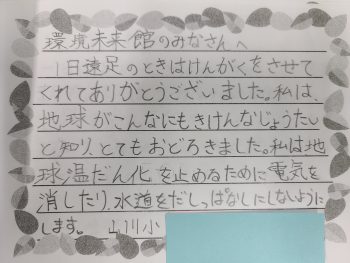 環境未来館のみなさんへ
1日遠足のときはけんがくをさせて
くれてありがとうございました。私は、
地球がこんなにもきけんなじょうたい
と知り、とてもおどろきました。私は地
球温だん化を止めるために電気を
消したり、水道をだしっぱなしにしないように
します。 山川小